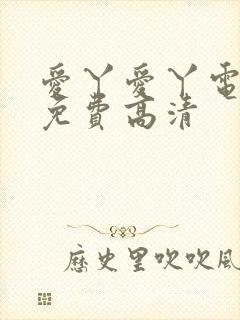 愛丫愛丫電
免費高清
歷史里吹吹風